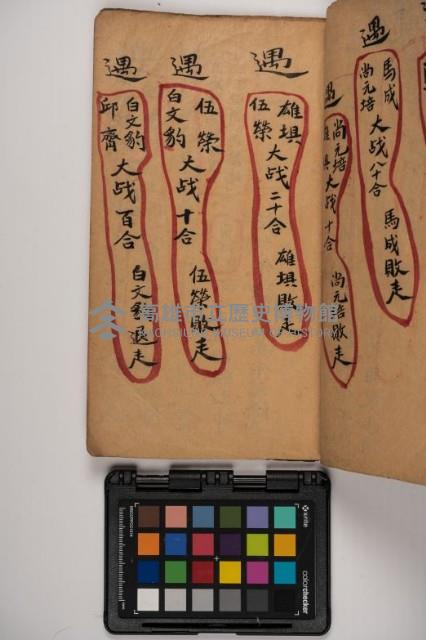 遇
馬成
尚元培
大战八十合
馬成敗走
遇
尚元培
雄垻
大战十合
尚元培敗走
遇
雄垻
伍榮
大战二十合
雄垻敗走
遇
伍榮
白文豹
大战十合
伍榮敗走
遇
白文豹
邱齊
大战百合
白文豹退走
高雄市立歷史博物館
KAOHSIUNG MUSEUM OF HISTORY
x-rite
colorchecker